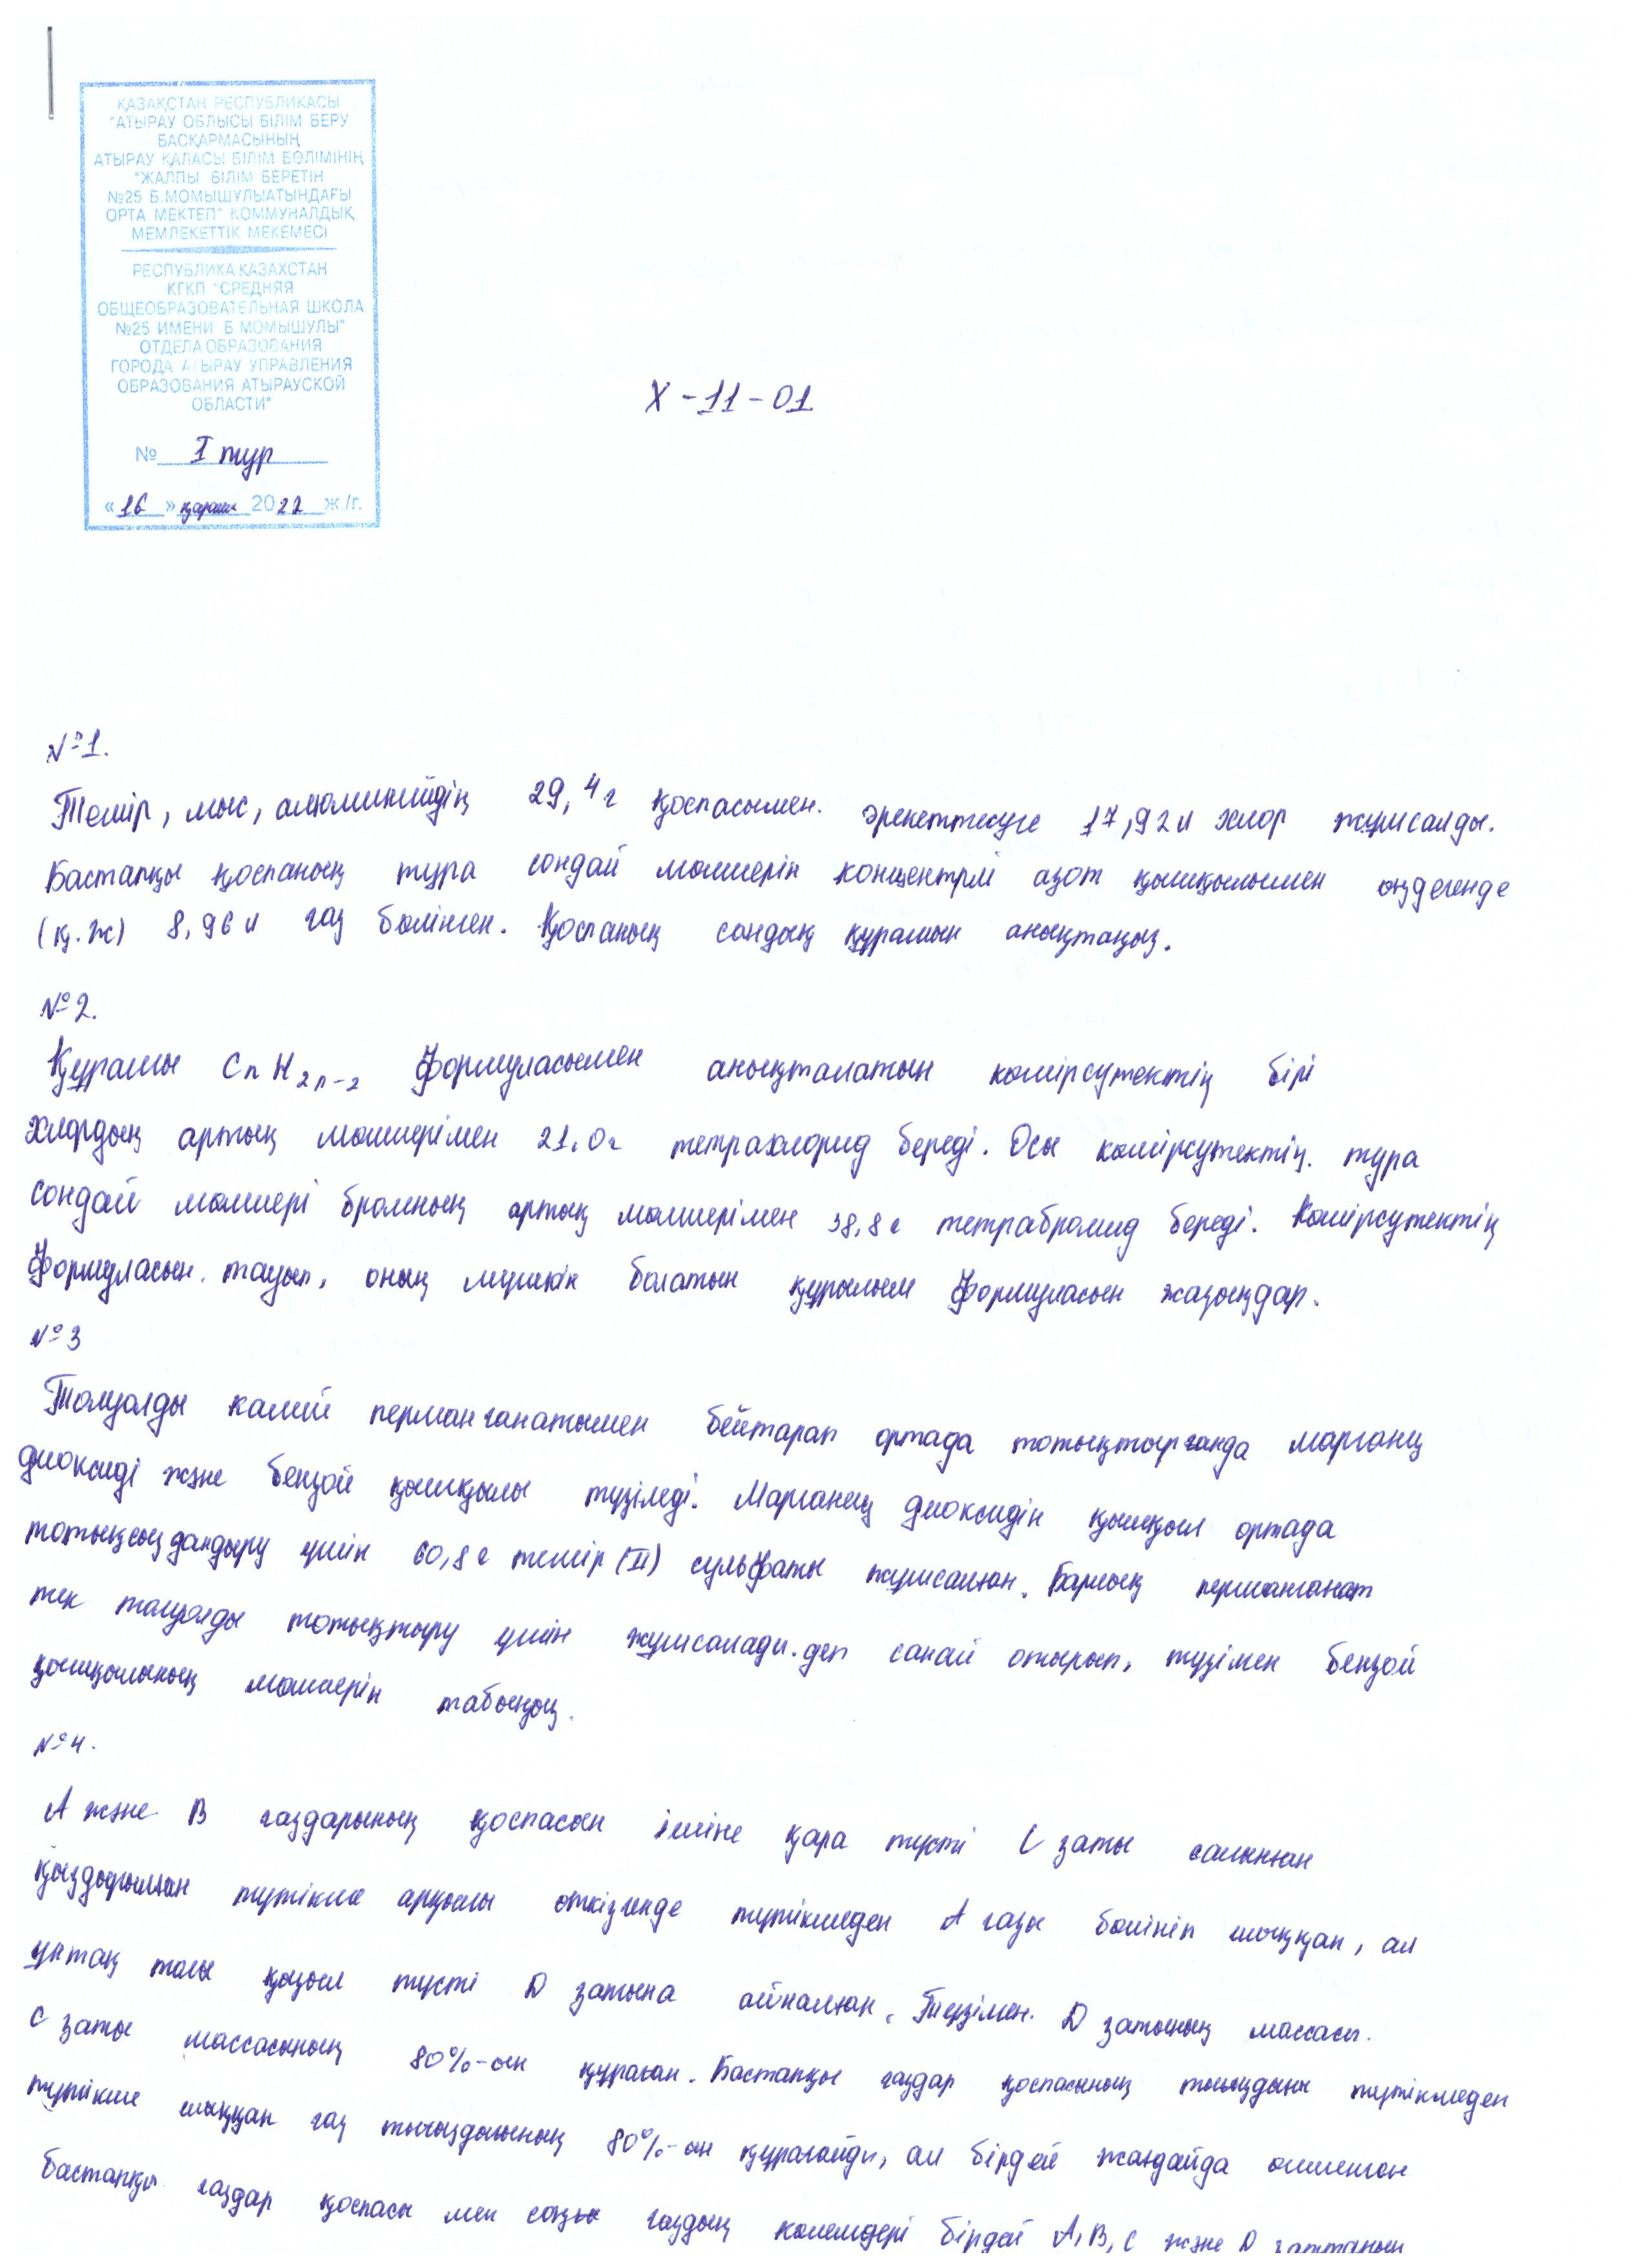 ҚАЗАҚСТАН РЕСПУБЛИКАСЫ
"АТЫРАУ ОБЛЫСЫ БІЛІМ БЕРУ
БАСҚАРМАСЫНЫҢ
АТЫРАУ ҚАЛАСЫ БІЛІМ БӨЛІМІНІҢ
"ЖАЛПЫ БІЛІМ БЕРЕТІН
№25 Б.МОМЫШҰЛЫАТЫНДАҒЫ
ОРТА МЕКТЕП" КОММУНАЛДЫҚ
МЕМЛЕКЕТТІК МЕКЕМЕСІ
РЕСПУБЛИКА КАЗАХСТАН
КГКП "СРЕДНЯЯ
ОБЩЕОБРАЗОВАТЕЛЬНАЯ ШКОЛА
№25 ИМЕНИ Б МОМЫШУЛЫ"
ОТДЕЛА ОБРАЗОВАНИЯ
ГОРОДА АТЫРАУ УПРАВЛЕНИЯ
ОБРАЗОВАНИЯ АТЫРАУСКОЙ
ОБЛАСТИ"
№ I тур
«16» қараша 2022 ж./г.
X-11-01
№1.
Темір, мыс, алюминийдің 29,4г қоспасымен. әрекеттесуге 17,92л хлор жұмсалды.
Бастапқы қоспаның тура сондай мөлшерін концентрлі азот қышқылымен өңдегенде
(қ.ж) 8,96л газ бөлінген. Қоспаның сандық құрамын анықтаңыз.
№2.
Құрамы CnH2n-2 формуласымен анықталатын көмірсутектің бірі
хлордың артық мөлшерімен 21,0г тетрахлорид береді. Осы көмірсутектің. тура
сондай мөлшері бромның артық мөлшерімен 38,8г тетрабромид береді. Көмірсутектің
формуласын. тауып, оның мүмкін болатын құрылым формуласын жазыңдар.
№3
Толуолды калий перманганатымен бейтарап ортада тотықтырғанда марганец
диоксиді және бензой қышқылы түзіледі. Марганец диоксидін қышқыл ортада
тотықсыздандыру үшін 60,8г темір (II) сульфаты жұмсалған. Барлық перманганат
тек толуолды тотықтыру үшін жұмсалады. деп санай отырып, түзілген бензой
қышқылының мөлшерін табыңыз.
№4.
А және В газдарының қоспасын ішіне қара түсті С заты салынған
қыздырылған түтікше арқылы өткізгенде түтікшеден А газы бөлініп шыққан, ал
ұнтақ толы қызыл түсті D затына айналған. Түзілген. D затының массасы.
С заты массасының 80%-ын құраған. Бастапқы газдар қоспасының тығыздығы түтікшеден
түтікше шыққан газ тығыздығының 80%-ын құрағайды, ал бірдей жағдайда өлшенген
бастапқы газдар қоспасы мен соңғы газдың көлемдері бірдей А, В, С және D